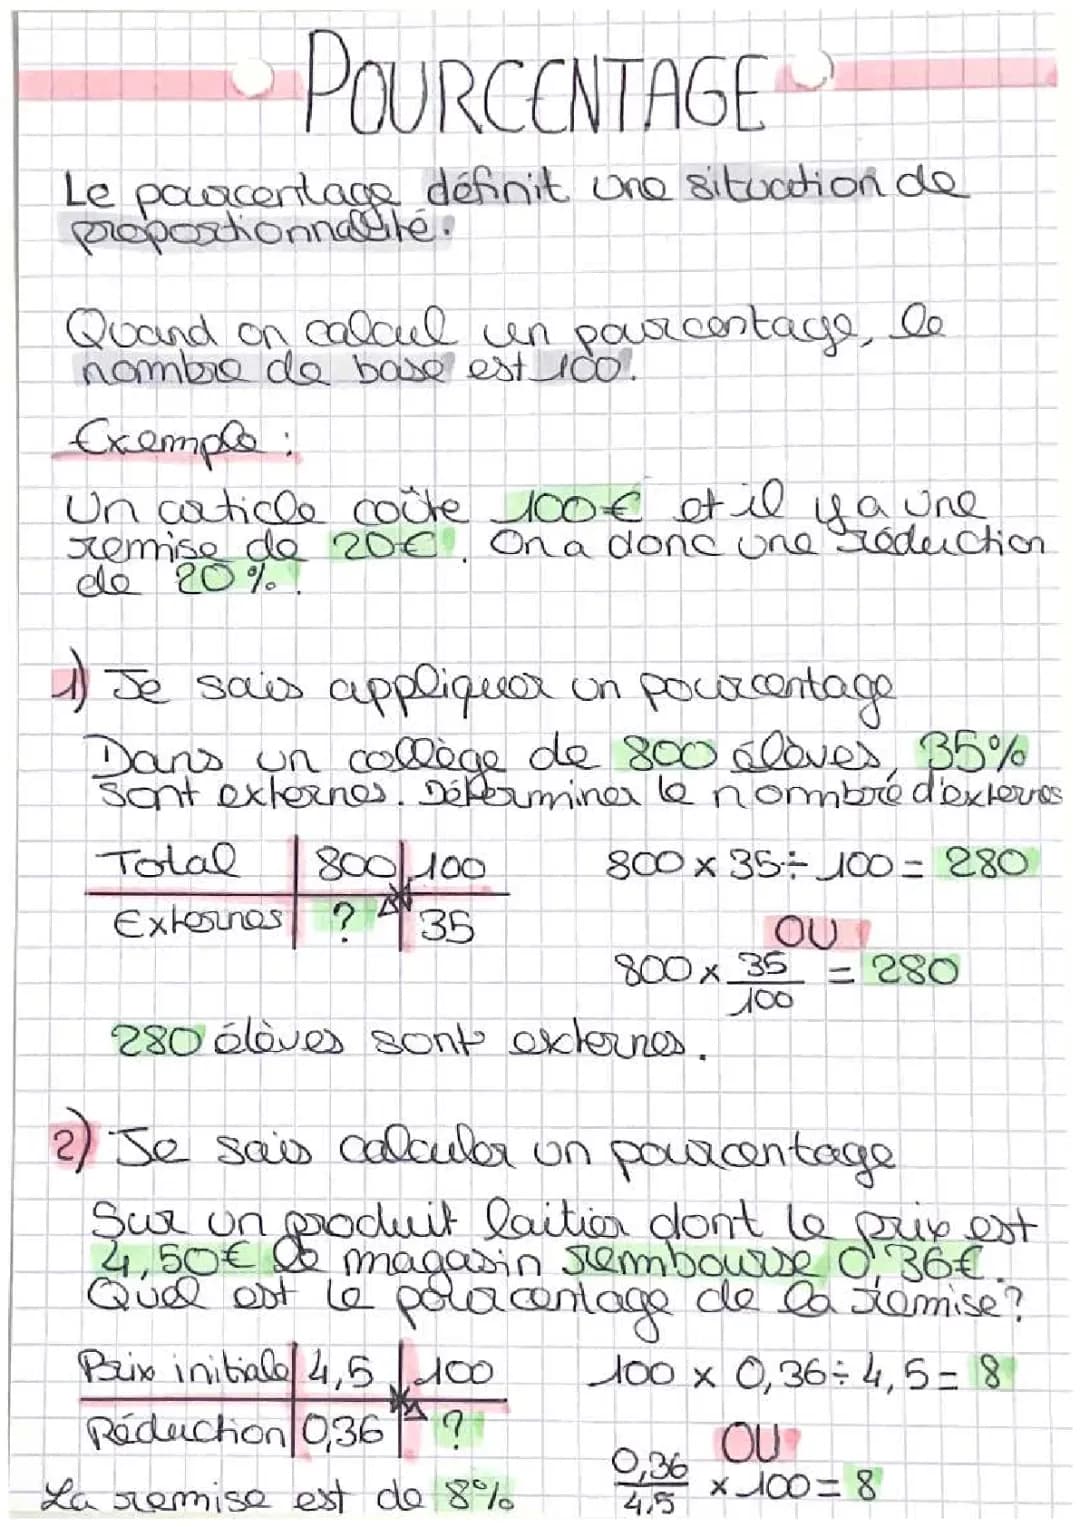 POURCENTAGE
Le pourcentage définit une situation de
proportionnalité.
Quand on calcul un pourcentage, le
nombre de base est 100.
Exemple :
Un article coûte 100€ et il y a une
remise de 20€. On a donc une réduction
de 20%.
1) Je sais appliquer un pourcentage
Dans un collège de 800 élèves, 35%
sont externes. Déterminer le nombre d'externes
Total 800 100
Externes ? 35
800 x 35 ÷ 100 = 280
OU
800 x 35/100 = 280
280 élèves sont externes.
2) Je sais calculer un pourcentage
Sur un produit laitier dont le prix est
4,50€ le magasin rembourse 0,36€.
Quel est le pourcentage de la remise?
Prix initiale 4,5 100
Réduction 0,36 ?
100 x 0,36 ÷ 4,5 = 8
OU
0,36/4,5 x 100 = 8
La remise est de 8%